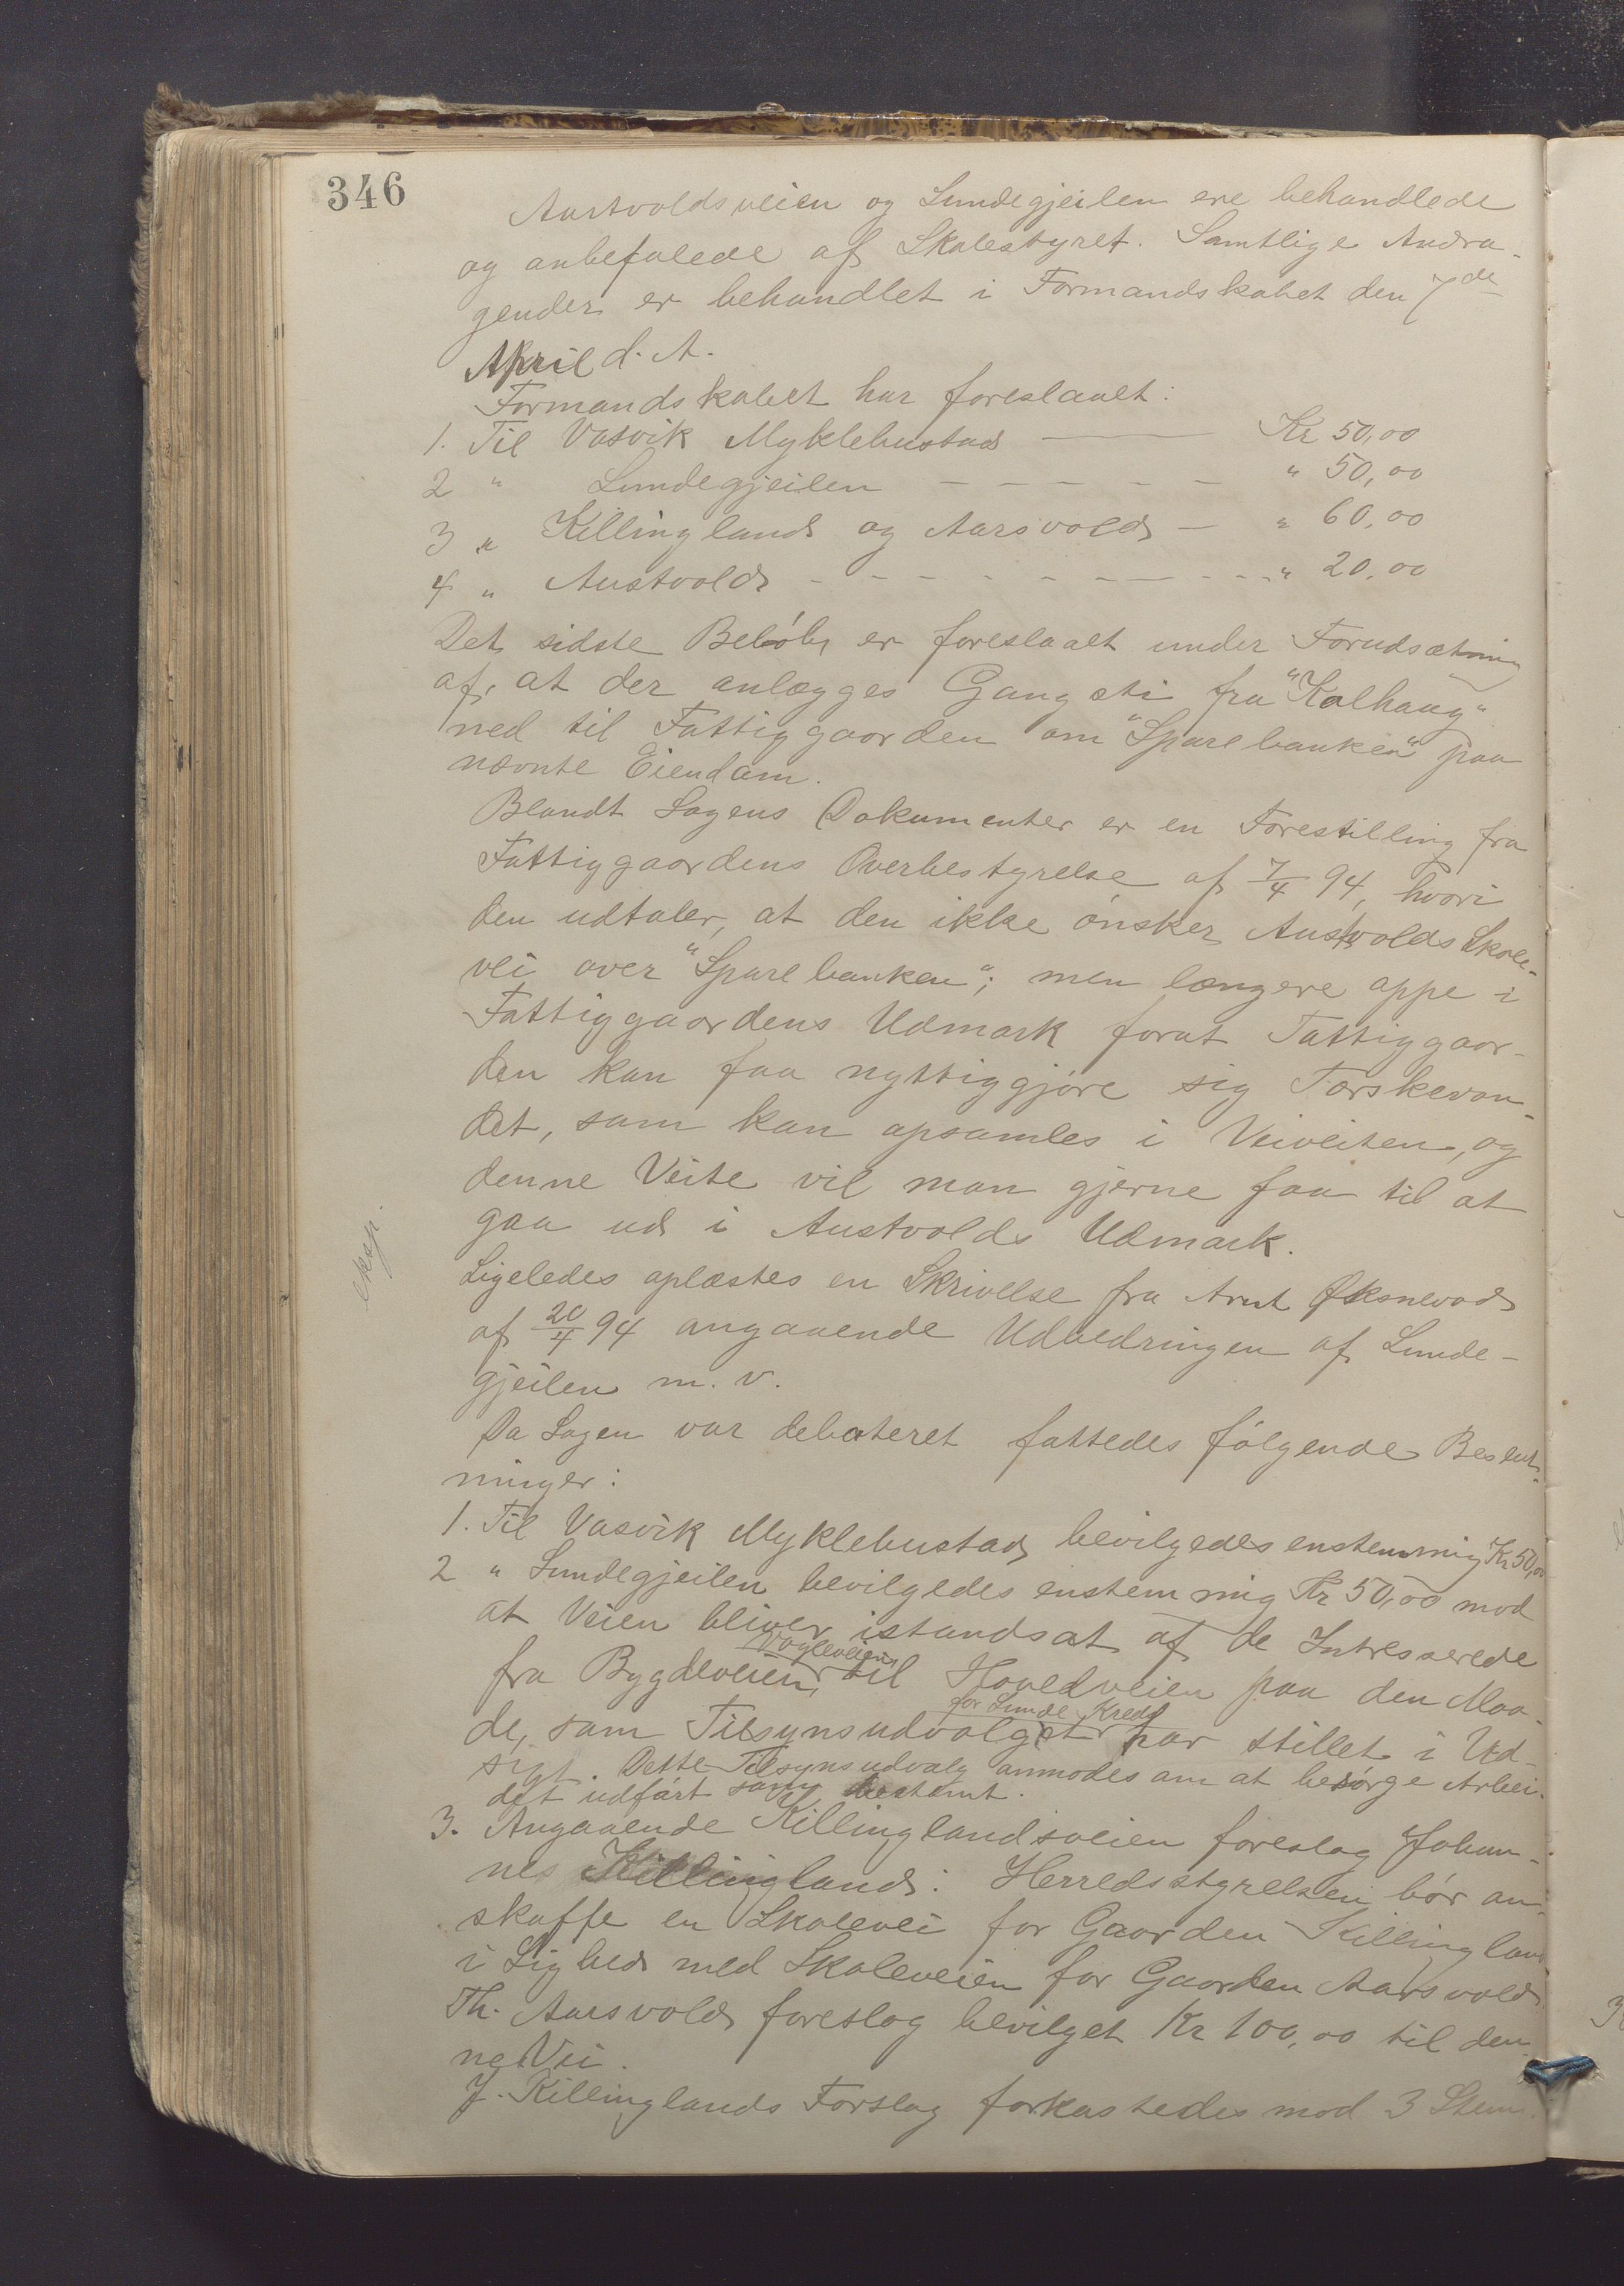 346
Austvoldsveien og Lundegjeilen ere behandlede
og anbefalede af Skolestyret. Samtlige Andra-
gender er behandlet i Formandskabet den 7de
April d. A.
Formandskabet har foreslaaet:
1. Til Vasvik Myklebustad — Kr 50,00
2 " Lundegjeilen — — — — — " 50,00
3 " Killingland og Aarsvold — " 60,00
4 " Austvold - - - - - - - - - " 20,00
Det sidste Beløb er foreslaaet under Forudsætning
af, at der anlægges Gangsti fra "Kalhaug"
ned til Fattiggaarden om "Sparebanken" paa
nævnte Eiendom.
Blandt Sagens Dokumenter er en Forestilling fra
Fattiggaardens Overbestyrelse af 7/4 94, hvori
den udtaler, at den ikke ønsker Austvolds Skole-
vei over "Sparebanken"; men længere oppe i
Fattiggaardens Udmark forat Fattiggaar-
den kan faa nyttiggjøre sig Tørskevan-
det, som kan opsamles i Veiveiten, og
denne Veite vil man gjerne faa til at
gaa ud i Austvolds Udmark.
eksp.
Ligeledes oplæstes en Skrivelse fra Arnt Øksnevad
af 20/4 94 angaaende Udbedringen af Lunde-
gjeilen m. v.
Da Sagen var debateret fattedes følgende Beslut-
ninger:
1. Til Vasvik Myklebustad bevilgedes enstemmig Kr 50,00
2 " Lundegjeilen bevilgedes enstemmig Kr 50,00 mod
at Veien bliver istandsat af de Intresserede
Vogleveien
fra Bygdeveien, til Hovedveien paa den Maa-
for Lunde Kreds
de, som Tilsynsudvalget har stillet i Ud-
sigt. Dette Tilsynsudvalg anmodes om at besørge Arbei-
det udført som bestemt.
3. Angaaende Killinglandsveien foreslog Johan-
nes Killingland: Herredsstyrelsen bør an-
skaffe en Skolevei for Gaarden Killingland
i Lighed med Skoleveien for Gaarden Aarsvold.
Th. Aarsvold foreslog bevilget Kr 100,00 til den-
ne Vei.
J. Killinglands Forslag forkastedes mod 3 Stem.